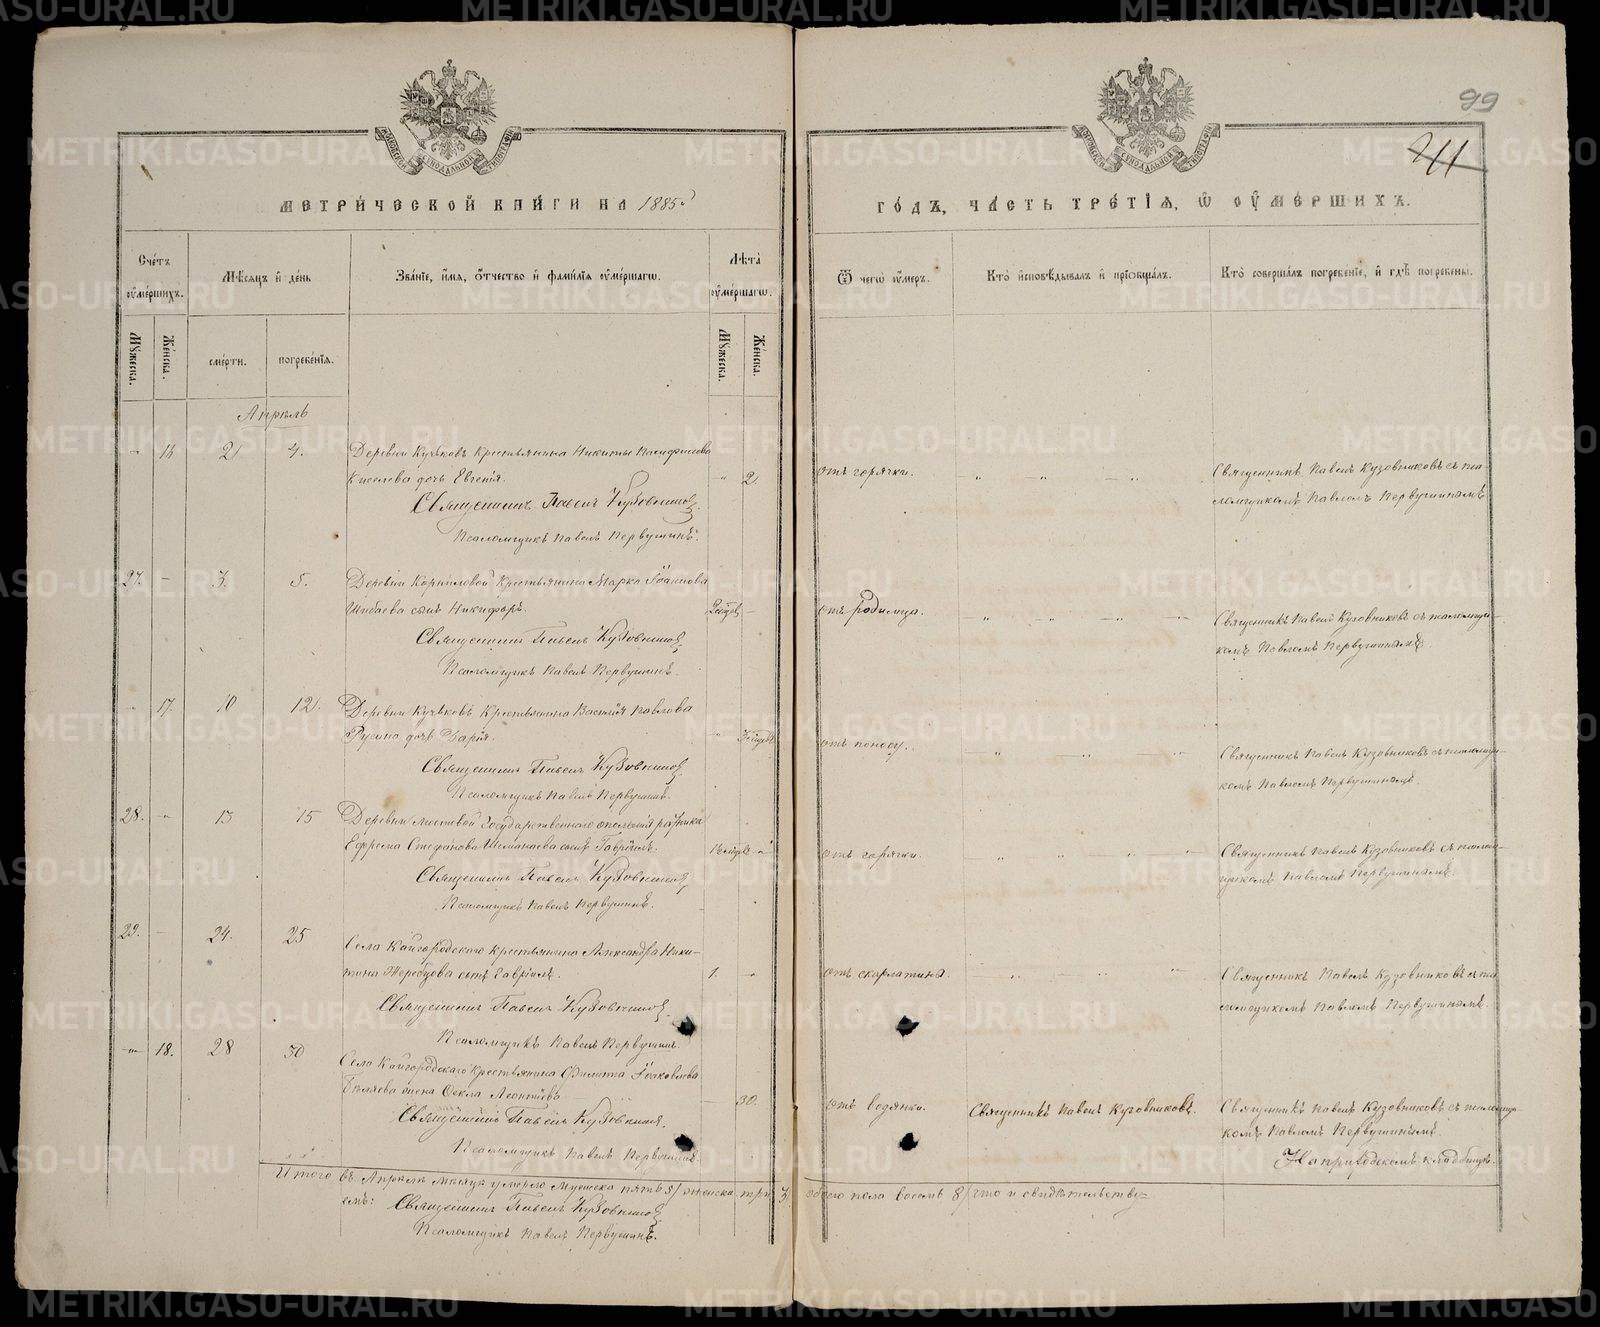 99
211
МЕТРИЧЕСКОЙ КНИГИ НА 1885й
ГОДЪ, ЧАСТЬ ТРЕТІЯ, Ѡ ОУМЕРШИХЪ.
Счетъ оумершихъ.
Мѣсяцъ и день
Званіе, имя, отчество и фамилія оумершагω.
Лѣта оумершагω.
Ѿ чегω оумеръ.
Кто исповѣдывалъ и пріобщалъ.
Кто совершалъ погребеніе, и гдѣ погребены.
Мꙋжеска.
Женска.
смерти.
погребенія.
Мꙋжеска.
Женска.
Апрѣль
16 2 4. Деревни Кучковъ Крестьянина Никиты
Киселева дочь Евгенія. 2. отъ горячки. Священникъ Павелъ Кузовниковъ съ пса-
ломщикомъ Павломъ Первушинымъ
Священникъ Павелъ Кузовников
Псаломщикъ Павелъ Первушинъ.
27. 3. 5. Деревни Корниловой Крестьянина Марка Іоаннова
Шибаева сынъ Никифоръ. отъ родимца. Священникъ Павелъ Кузовниковъ съ псаломщи-
комъ Павломъ Первушинымъ.
Священникъ Павелъ Кузовников
Псаломщикъ Павелъ Первушинъ.
17. 10 12. Деревни Кучковъ Крестьянина Василія Павлова
Русина дочь Дарія. отъ поносу. Священникъ Павелъ Кузовниковъ съ псаломщи-
комъ Павломъ Первушинымъ.
Священникъ Павелъ Кузовников
Псаломщикъ Павелъ Первушинъ.
28. 13 15 Деревни Мостовой Государственнаго ополченія ратника
Ефрема Стефанова сынъ Гавріилъ. отъ горячки. Священникъ Павелъ Кузовниковъ съ псалом-
щикомъ Павломъ Первушинымъ.
Священникъ Павелъ Кузовников
Псаломщикъ Павелъ Первушинъ.
29. 24. 25 Села Кайгородскаго Крестьянина Александра Ники-
тина Жеребцова сынъ Гавріилъ. 1. отъ скарлатины. Священникъ Павелъ Кузовниковъ съ пса-
ломщикомъ Павломъ Первушинымъ.
Священникъ Павелъ Кузовников
Псаломщикъ Павелъ Первушинъ.
18. 28 30 Села Кайгородскаго Крестьянина Филиппа Іаковлева
Бѣляева жена Фекла Леонтіева 30. отъ водянки. Священникъ Павелъ Кузовниковъ. Священникъ Павелъ Кузовниковъ съ псаломщи-
комъ Павломъ Первушинымъ.
Священникъ Павелъ Кузовников
Псаломщикъ Павелъ Первушинъ.
На приходскомъ кладбищѣ.
Итого въ Апрѣлѣ мѣсяцѣ умерло Мужеска пять 5, женска три 3, обоего пола восемь 8, что и свидѣтельству-
емъ: Священникъ Павелъ Кузовников
Псаломщикъ Павелъ Первушинъ.
METRIKI.GASO-URAL.RU